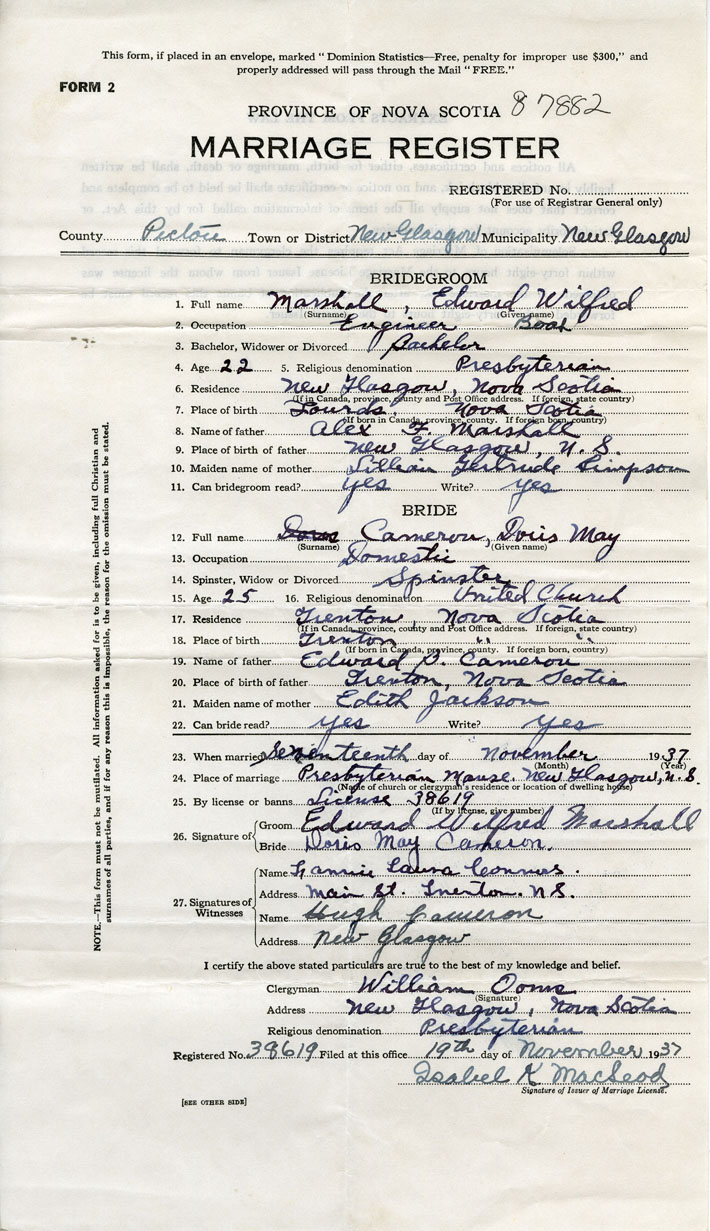 This form, if placed in an envelope, marked " Dominion Statistics—Free, penalty for improper use $300," and
properly addressed will pass through the Mail "FREE."
FORM 2
PROVINCE OF NOVA SCOTIA 87882
MARRIAGE REGISTER
REGISTERED No.
(For use of Registrar General only)
County Pictou Town or District New Glasgow Municipality New Glasgow
BRIDEGROOM
1. Full name Marshall, Edward Wilfred
(Surname) (Given name)
2. Occupation Engineer Boat
3. Bachelor, Widower or Divorced Bachelor
4. Age 22 5. Religious denomination Presbyterian
6. Residence New Glasgow, Nova Scotia
(If in Canada, province, county and Post Office address. If foreign, state country)
7. Place of birth Lourds, Nova Scotia
(If born in Canada, province, county. If foreign born, country)
8. Name of father Alex F. Marshall
9. Place of birth of father New Glasgow, N. S.
10. Maiden name of mother Lillian Gertrude Simpson
11. Can bridegroom read? yes Write? yes
BRIDE
12. Full name Doris Cameron, Doris May
(Surname) (Given name)
13. Occupation Domestic
14. Spinster, Widow or Divorced Spinster
15. Age 25 16. Religious denomination United Church
17. Residence Trenton, Nova Scotia
(If in Canada, province, county and Post Office address. If foreign, state country)
18. Place of birth Trenton " "
(If born in Canada, province, county. If foreign born, country)
19. Name of father Edward Cameron
20. Place of birth of father Trenton, Nova Scotia
21. Maiden name of mother Edith Jackson
22. Can bride read? yes Write? yes
23. When married Seventeenth day of November 1937
(Month) (Year)
24. Place of marriage Presbyterian Manse. New Glasgow, N. S.
(Name of church or clergyman's residence or location of dwelling house)
25. By license or banns License 38619
(If by license, give number)
26. Signature of
Groom Edward Wilfred Marshall
Bride Doris May Cameron.
27. Signatures of Witnesses
Name Fannie Laura Connors.
Address Main St. Trenton. N.S.
Name Hugh Cameron
Address New Glasgow
I certify the above stated particulars are true to the best of my knowledge and belief.
Clergyman William Ooms
(Signature)
Address New Glasgow, Nova Scotia
Religious denomination Presbyterian
Registered No. 38619 Filed at this office 19th day of November 1937
Isabel K MacLeod
Signature of Issuer of Marriage License.
[SEE OTHER SIDE]
NOTE.—This form must not be mutilated. All information asked for is to be given, including full Christian and
surnames of all parties, and if for any reason this is impossible, the reason for the omission must be stated.